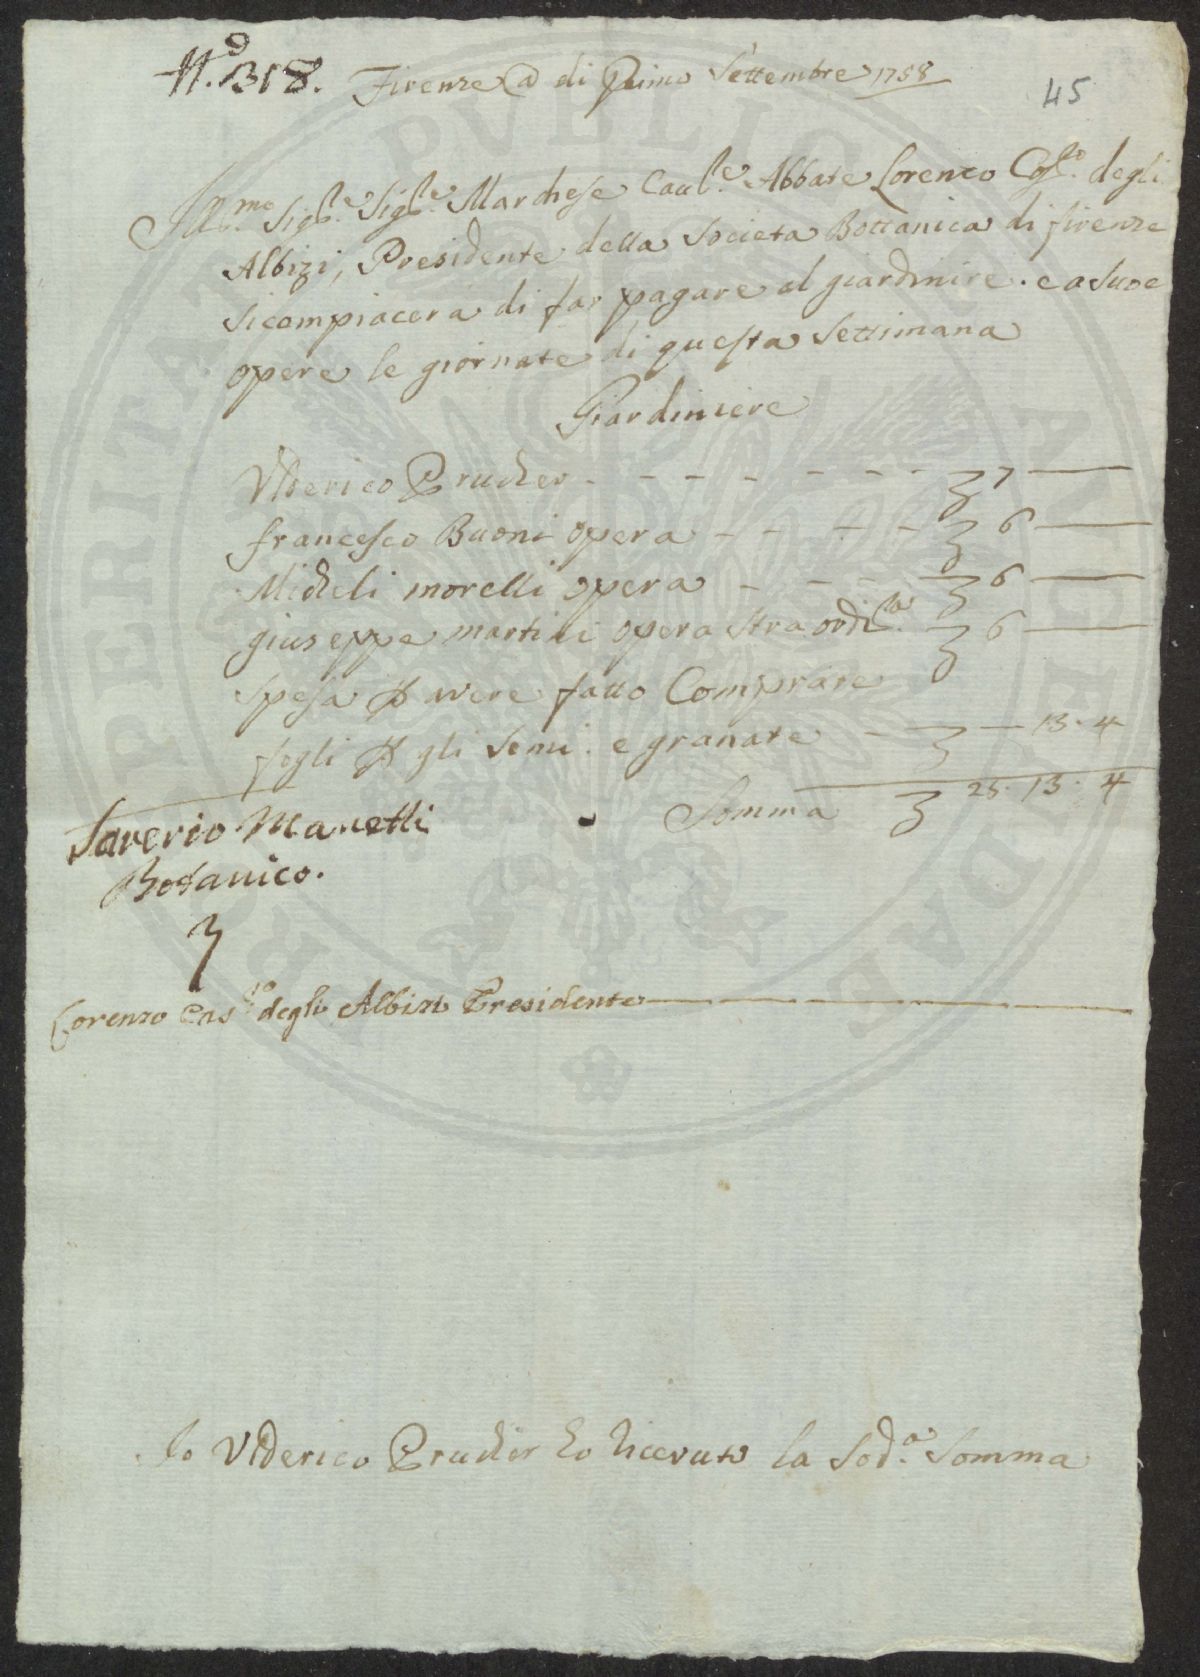 N.º 318. Firenze @ di Primo Settembre 1758
45
Ill.mo Sig.re Sig.re Marchese Caul.e Abbate Lorenzo Cas.lo degli
Albizi, Presidente della Societa Bottanica di firenze
Sicompiacera di far pagare al giardinire. e a Sue
opere le giornate di questa Settimana
Giardiniere
Vlderico Prucher - - - - - - - 7 —
francesco Buoni opera - - - - 6 —
Micheli morelli opera - - - 6 —
giuseppe martini opera straordi.ra 6 —
spesa p avere fatto Comprare
fogli p gli semi. e granate - — 13. 4
Somma 25. 13. 4
Saverio Manetti
Botanico.
Lorenzo Cas.lo degli Albizi Presidente
Io Vlderico Prucher ho ricevuto la Sod.a Somma
REI PVBLICAE
PERITATI